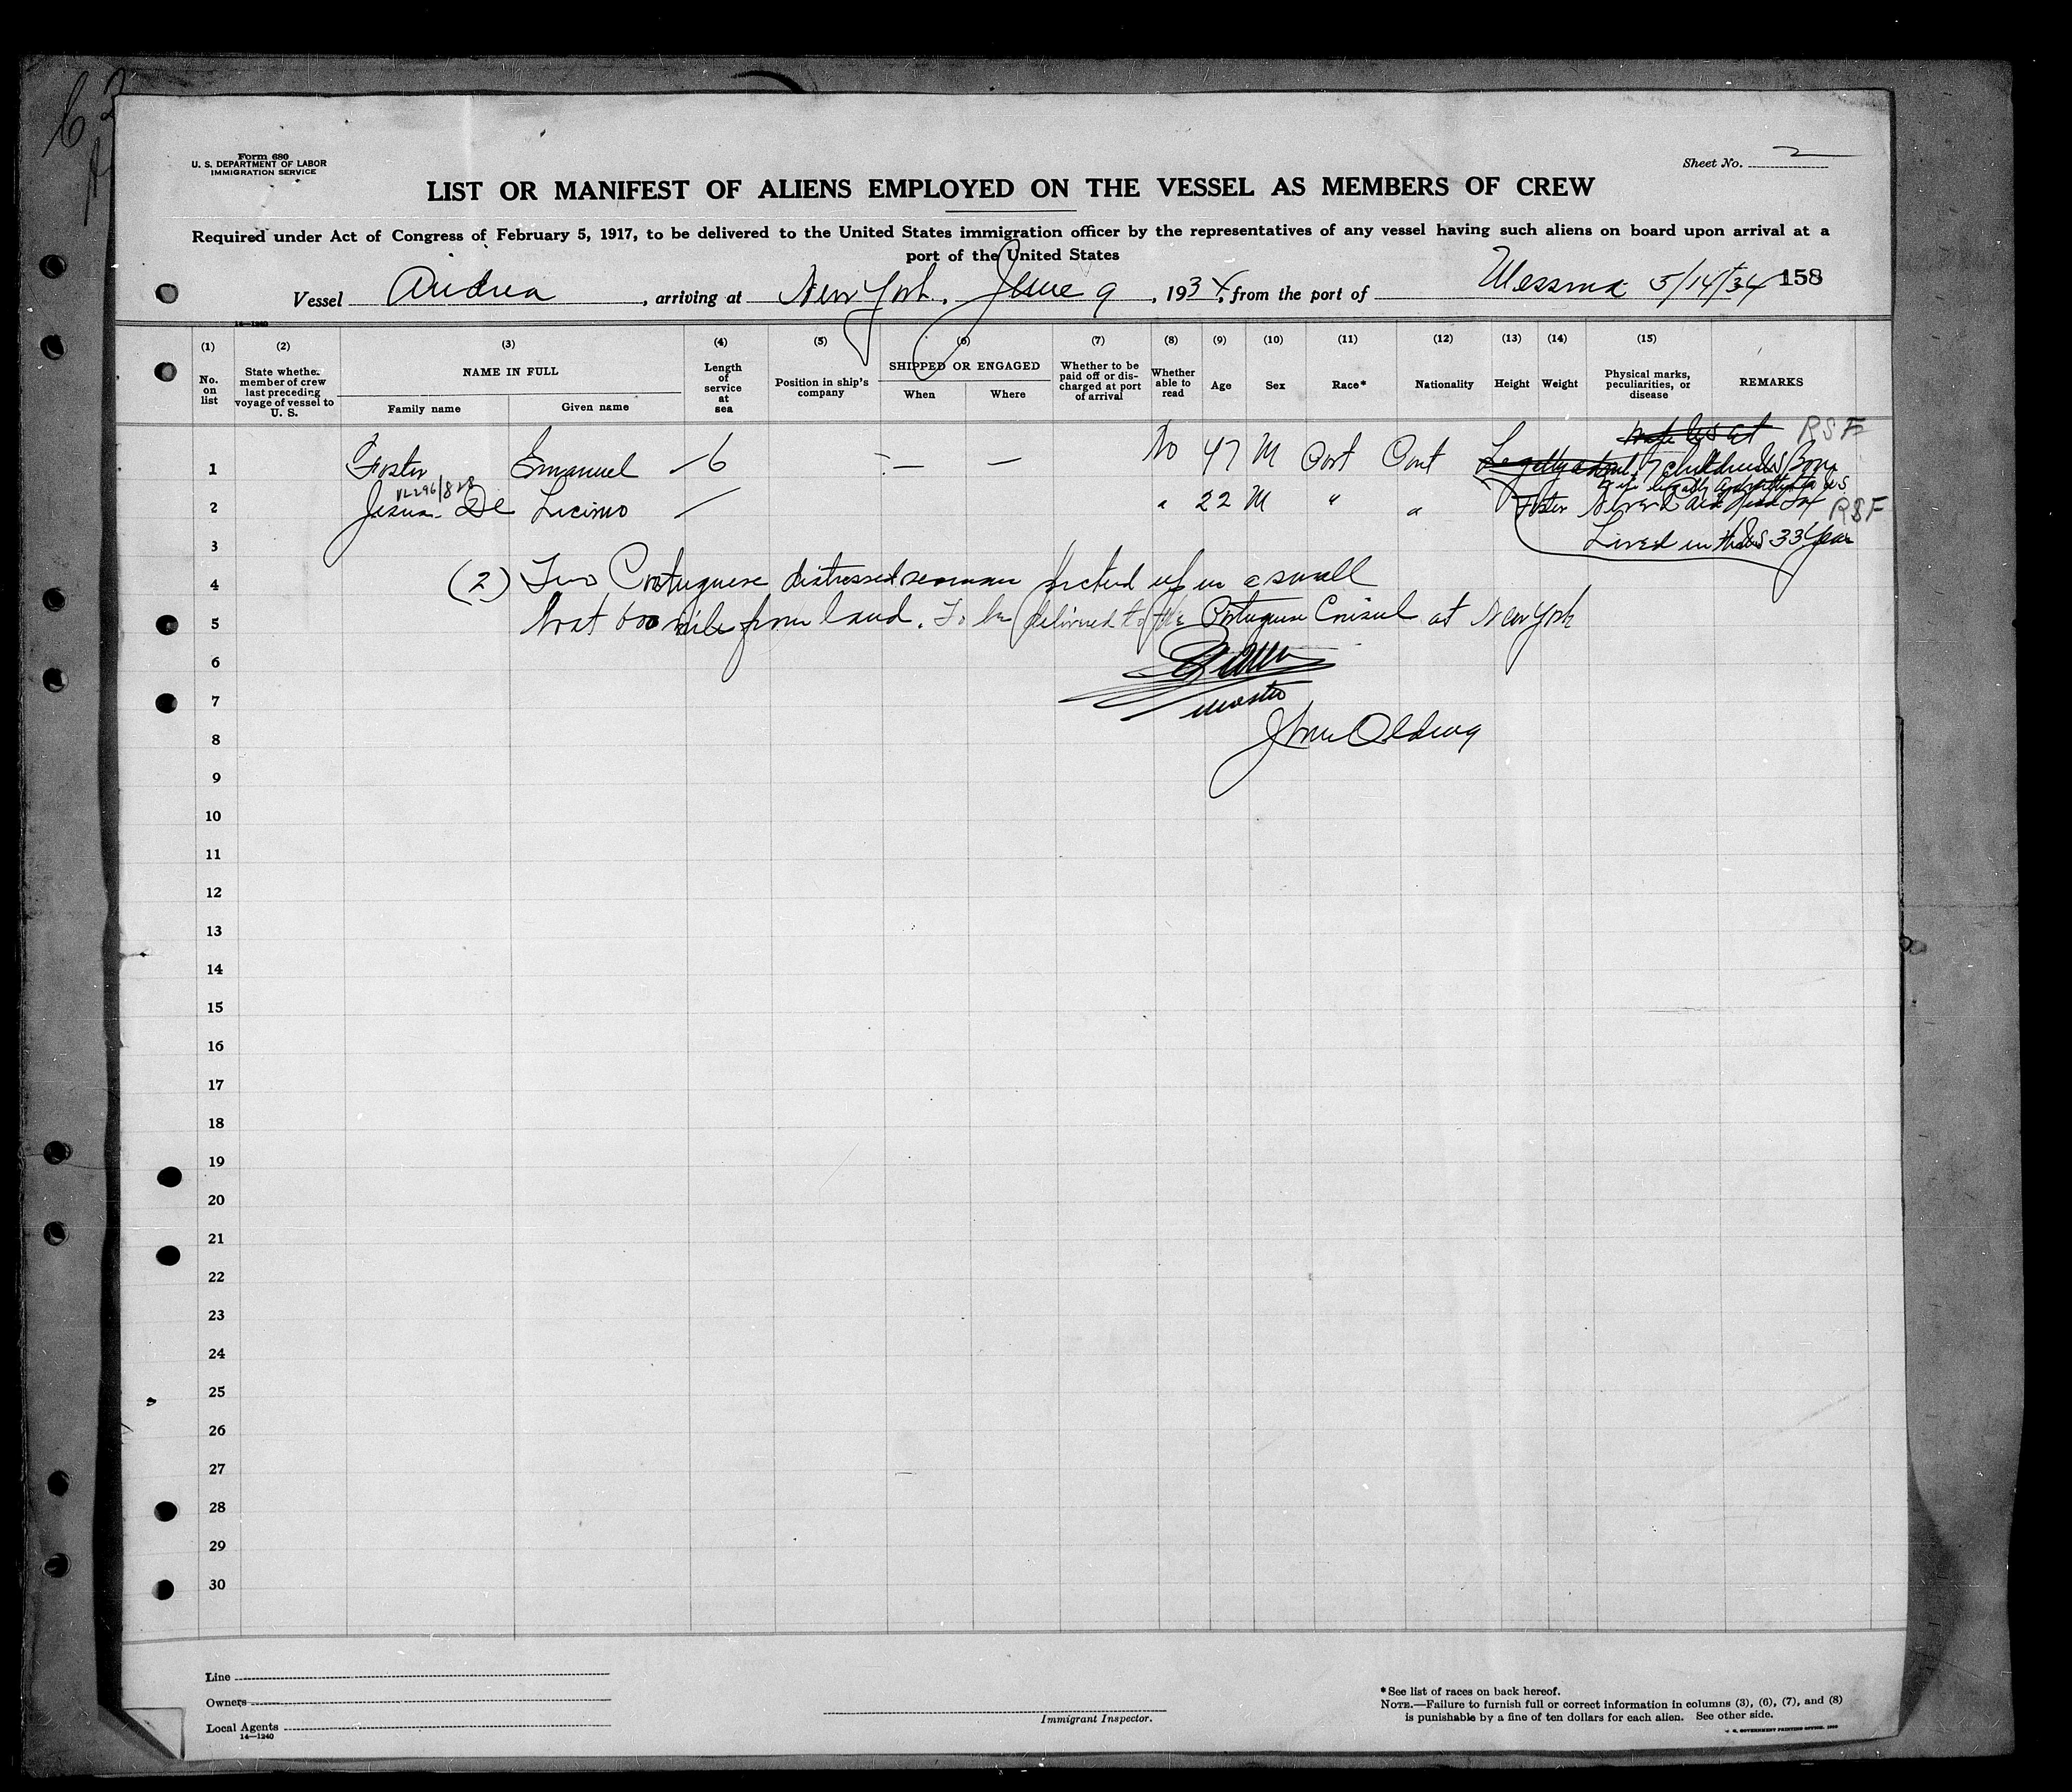 Form 680
U. S. DEPARTMENT OF LABOR
IMMIGRATION SERVICE
Sheet No. 2
LIST OR MANIFEST OF ALIENS EMPLOYED ON THE VESSEL AS MEMBERS OF CREW
Required under Act of Congress of February 5, 1917, to be delivered to the United States immigration officer by the representatives of any vessel having such aliens on board upon arrival at a
port of the United States
Vessel Andrea, arriving at New York, June 9, 1934, from the port of Messina 5/14/34 158
14—1240
(1) (2) (3) (4) (5) (6) (7) (8) (9) (10) (11) (12) (13) (14) (15)
No. on list
State whether member of crew last preceding voyage of vessel to U. S.
NAME IN FULL
Family name
Given name
Length of service at sea
Position in ship's company
SHIPPED OR ENGAGED
When
Where
Whether to be paid off or discharged at port of arrival
Whether able to read
Age
Sex
Race*
Nationality
Height
Weight
Physical marks, peculiarities, or disease
REMARKS
RSF
1 Foster Emanuel — 6 — — No 47 M Port Port 7 children US Born
2 Jesus De Licinio " 22 M " " Foster Never Paid Head Tax RSF
3 Lived in the US 33 Year
4 (2) Two Portuguese distressed seaman picked up in a small
5 boat 600 mile from land. To be delivered to the Portuguese Consul at New York
6
7 master
8
9
10
11
12
13
14
15
16
17
18
19
20
21
22
23
24
25
26
27
28
29
30
Line
Owners
Local Agents
14—1240
Immigrant Inspector.
*See list of races on back hereof.
NOTE.—Failure to furnish full or correct information in columns (3), (6), (7), and (8)
is punishable by a fine of ten dollars for each alien. See other side.